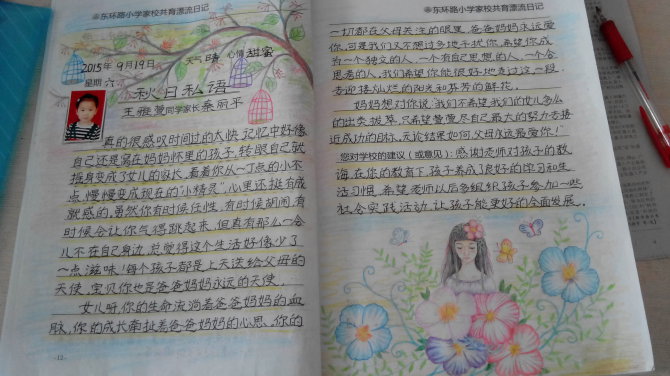 东环路小学家校共育漂流日记
2015年9月19日 天气 晴 心情 甜蜜
星期 六
秋日私语
王雅萱同学家长 秦丽平
真的很感叹时间过的太快,记忆中好像
自己还是窝在妈妈怀里的孩子,转眼自己就
摇身变成了女儿的家长,看着你从一丁点的小不
点,慢慢变成现在的“小精灵”,心里还挺有成
就感的,虽然你有时候任性,有时候胡闹,有
时候会让你气得跳起来,但真有那么一会
儿不在自己身边,总觉得这个生活好像少了
一点滋味!每个孩子都是上天送给父母的
天使,宝贝你也是爸爸妈妈永远的天使.
女儿呀,你的生命流淌着爸爸妈妈的血
脉,你的成长牵扯着爸爸妈妈的心思,你的
-12-
东环路小学家校共育漂流日记
一切都在父母关注的眼里,爸爸妈妈永远爱
你,可是我们又不想过多地干扰你,希望你成
为一个独立的人,一个有自己思想的人,一个会
思考的人,我们希望你能很好地走过这一段.
去迎接灿烂的阳光和芬芳的鲜花.
妈妈想对你说:我们不希望我们的女儿多么
的出类拔萃,只希望萱萱尽自己最大的努力去接
近成功的目标,无论结果如何,父母永远最爱你!
您对学校的建议(或意见):感谢老师对孩子的教
诲,在你的教育下,孩子养成了良好的学习和生
活习惯,希望老师以后多组织孩子参加一些
社会实践活动,让孩子能更好的全面发展..